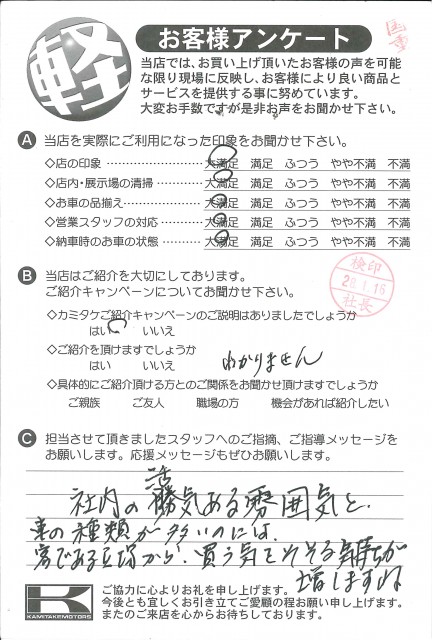 軽
お客様アンケート
当店では、お買い上げ頂いたお客様の声を可能
な限り現場に反映し、お客様により良い商品と
サービスを提供する事に努めています。
大変お手数ですが是非お声をお聞かせ下さい。
A 当店を実際にご利用になった印象をお聞かせ下さい。
◇店の印象 大満足 満足 ふつう やや不満 不満
◇店内・展示場の清掃 大満足 満足 ふつう やや不満 不満
◇お車の品揃え 大満足 満足 ふつう やや不満 不満
◇営業スタッフの対応 大満足 満足 ふつう やや不満 不満
◇納車時のお車の状態 大満足 満足 ふつう やや不満 不満
B 当店はご紹介を大切にしております。
ご紹介キャンペーンについてお聞かせ下さい。
検印
28.1.16
社長
◇カミタケご紹介キャンペーンのご説明はありましたでしょうか
はい いいえ
◇ご紹介を頂けますでしょうか
はい いいえ わかりません
◇具体的にご紹介頂ける方とのご関係をお聞かせ頂けますでしょうか
ご親族 ご友人 職場の方 機会があれば紹介したい
C 担当させて頂きましたスタッフへのご指摘、ご指導メッセージを
お願いします。応援メッセージもぜひお願いします。
活
社内の 気ある雰囲気と、
車の種類が多いのには、
客である立場から、買う気をそそる気持ちが
増しますね
K
KAMITAKEMOTORS
ご協力に心よりお礼を申し上げます。
今後とも宜しくお引き立てご愛顧の程お願い申し上げます。
またのご来店を心からお待ちしております。